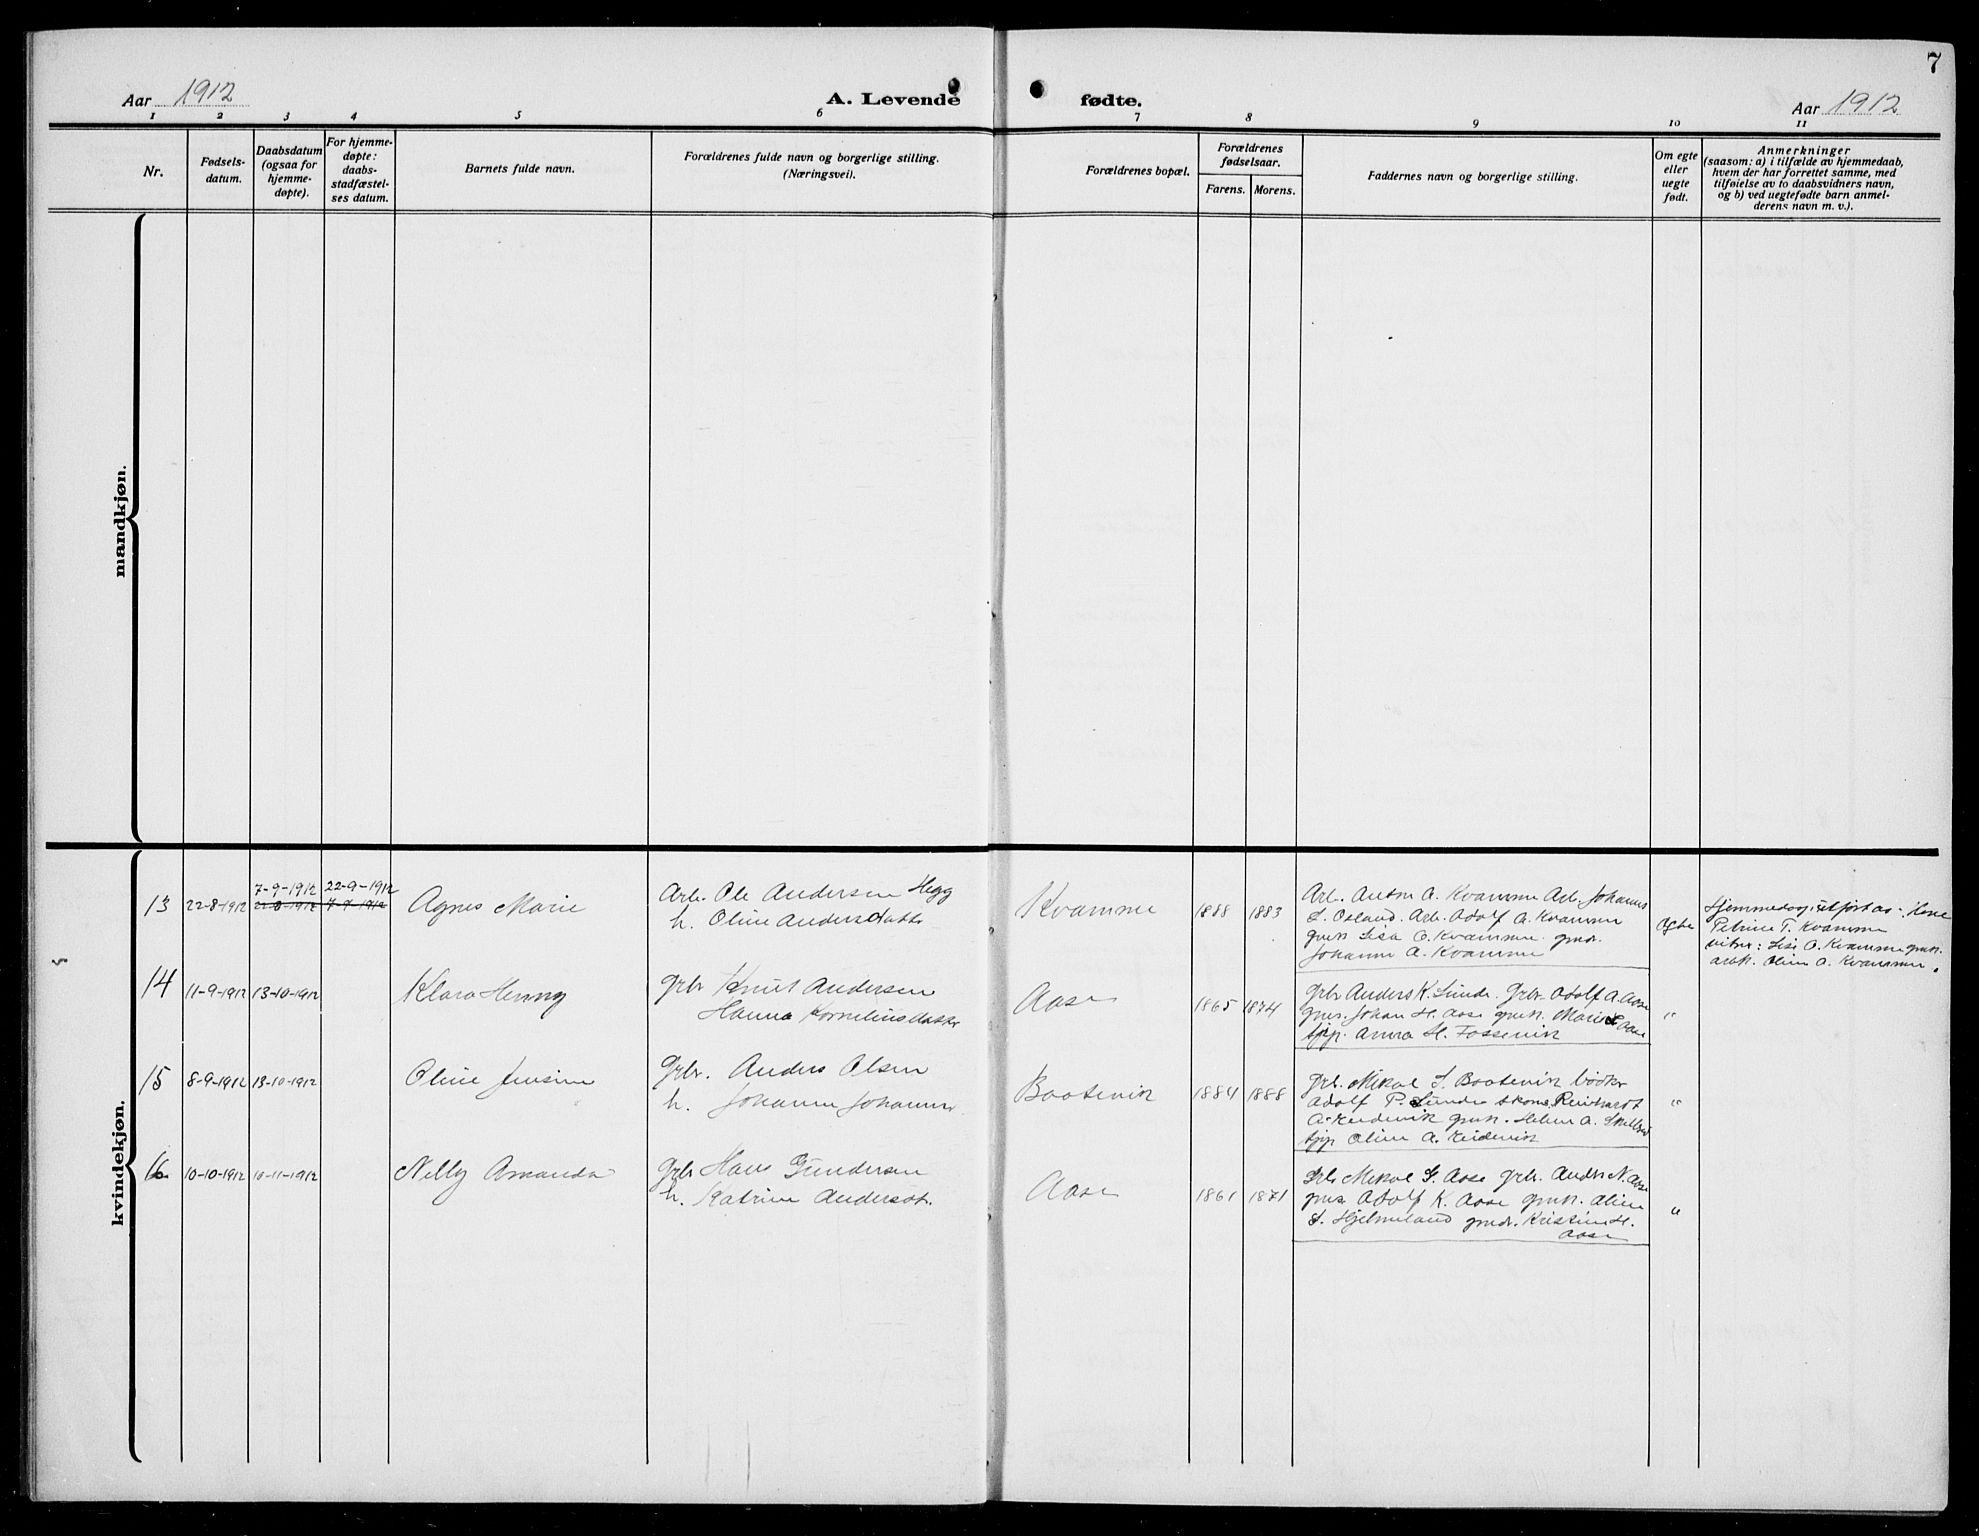 7
Aar 1912
A. Levende fødte.
Aar 1912
1 2 3 4 5 6 7 8 9 10 11
Nr.
Fødsels-
datum.
Daabsdatum
(ogsaa for
hjemme-
døpte).
For hjemme-
døpte:
daabs-
stadfæstel-
ses datum.
Barnets fulde navn.
Forældrenes fulde navn og borgerlige stilling.
(Næringsvei).
Forældrenes bopæl.
Forældrenes
fødselsaar.
Farens. Morens.
Faddernes navn og borgerlige stilling.
Om egte
eller
uegte
født.
Anmerkninger
(saasom: a) i tilfælde av hjemmedaab,
hvem der har forrettet samme, med
tilføielse av to daabsvidners navn,
og b) ved uegtefødte barn anmel-
derens navn m. v.).
mandkjøn.
kvindekjøn.
13
22-8-1912
7-9-1912
22-8-1912
22-9-1912
7-9-1912
Agnes Marie
Arb. Ole Andersen Hegg
h. Oline Andersdatter
Kvamme
1888 1883
Arb. Anton A. Kvamme Arb. Johannes
S. Osland. Arb. Adolf A. Kvamme
gmk Lisa O. Kvamme
Johanne A. Kvamme
egte
Petrine T. Kvamme
O. Kvamme gmk.
Oline A. Kvamme.
14
11-9-1912
13-10-1912
Klara Henny
Grbr Knut Andersen
Hanna Korneliusdatter
Aase
1865 1874
Grbr Anders K. Sunde. Grbr. Adolf A. Aase
Johan H. Aase gmk. Marie Aase
tjp. Anna H. Fossevik
"
15
8-9-1912
13-10-1912
Oline Jensine
Grbr. Anders Olsen
h. Johanne Johannes
Baatevik
1884 1888
Mikal S. Baatevik bødker
Adolf P. Sunde skom. Reinhardt
A. gmk.
tjp Oline A.
"
16
10-10-1912
10-11-1912
Nelly Amanda
Grbr Hans Gundersen
h. Katrine Andersdt.
Aase
1861 1871
Mikal G. Aase Grbr. Anders N. Aase
Adolf K. Aase gmk. Oline
S. Hjelmeland Kristine H.
Aase
"